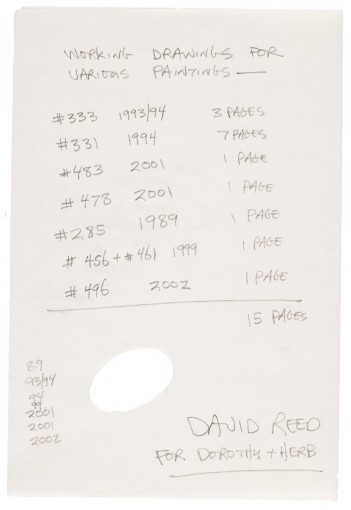 WORKING DRAWINGS FOR
VARIOUS PAINTINGS —
#333 1993/94 3 PAGES
#331 1994 7 PAGES
#483 2001 1 PAGE
#478 2001 1 PAGE
#285 1989 1 PAGE
#456 + #461 1999 1 PAGE
#496 2002 1 PAGE
15 PAGES
89
93/94
94
99
2001
2001
2002
DAVID REED
FOR DOROTHY + HERB